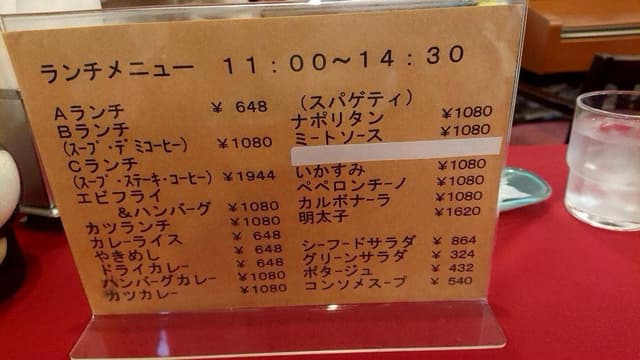 ランチメニュー 11:00~14:30
Aランチ ¥ 648
Bランチ
(スープ・デミコーヒー) ¥1080
Cランチ
(スープ・ステーキ・コーヒー) ¥1944
エビフライ
&ハンバーグ ¥1080
カツランチ ¥1080
カレーライス ¥ 648
やきめし ¥ 648
ドライカレー ¥ 648
ハンバーグカレー ¥1080
カツカレー ¥1080
(スパゲティ)
ナポリタン ¥1080
ミートソース ¥1080
いかすみ ¥1080
ペペロンチーノ ¥1080
カルボナーラ ¥1080
明太子 ¥1620
シーフードサラダ ¥ 864
グリーンサラダ ¥ 324
ポタージュ ¥ 432
コンソメスープ ¥ 540